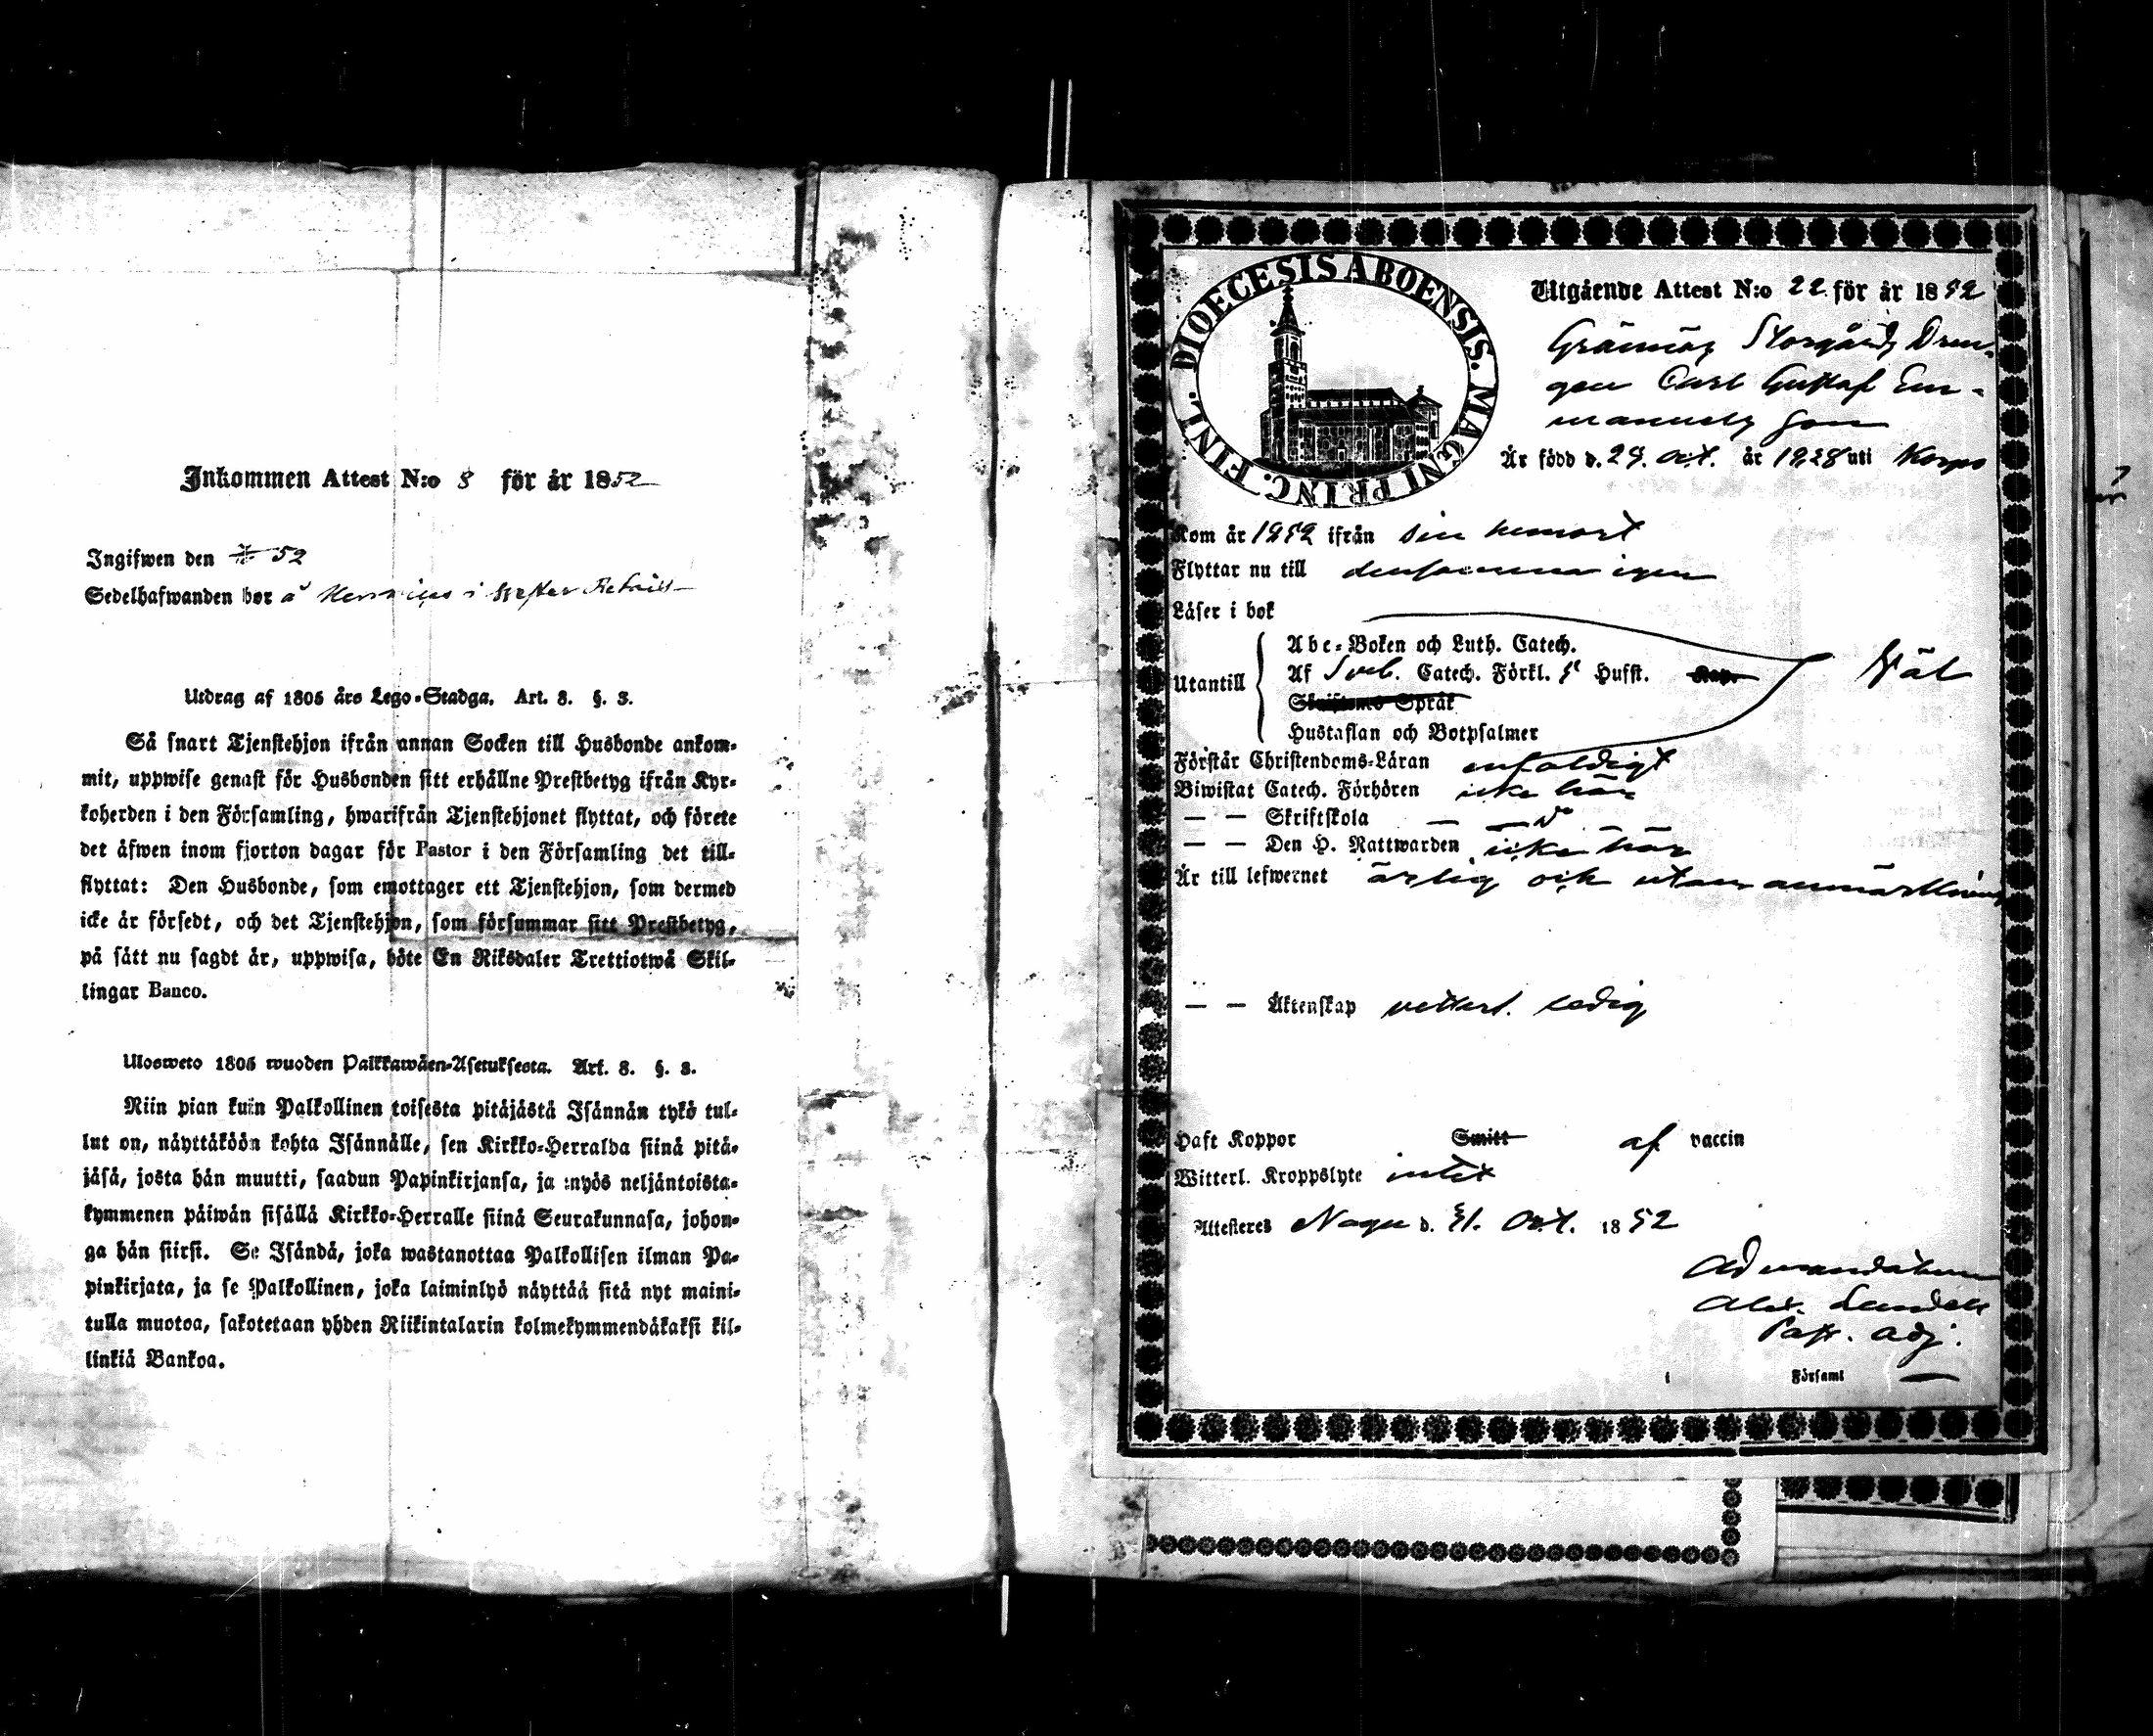 Inkommen Attest N:o 8 för år 1852
Ingifwen den 52
Sedelhafwanden bor å i
Utdrag af 1805 års Lego-Stadga. Art. 8. §. 3.
Så snart Tjenstehjon ifrån annan Socken till Husbonde ankom-
mit, uppwise genast för Husbonden sitt erhållne Prestbetyg ifrån Kyr-
koherden i den Församling, hwarifrån Tjenstehjonet flyttat, och förete
det äfwen inom fjorton dagar för Pastor i den Församling det till-
flyttat: Den Husbonde, som emottager ett Tjenstehjon, som dermed
icke är försedt, och det Tjenstehjon, som försummar sitt Prestbetyg,
på sätt nu sagdt är, uppwisa, böte En Riksdaler Trettiotwå Skil-
lingar Banco.
Ulosweto 1805 wuoden Palkkawäen-Asetuksesta. Art. 8. §. 3.
Niin pian kuin Palkollinen toisesta pitäjästä Isännän tykö tul-
lut on, näyttäköön kohta Isännälle, sen Kirkko-Herralda siinä pitä-
jäsä, josta hän muutti, saadun Papinkirjansa, ja myös neljäntoista-
kymmenen päiwän sisällä Kirkko-Herralle siinä Seurakunnasa, johon-
ga hän siirsi. Se Isändä, joka wastanottaa Palkollisen ilman Pa-
pinkirjata, ja se Palkollinen, joka laiminlyö näyttää sitä nyt maini-
tulla muotoa, sakotetaan yhden Riikintalarin kolmekymmendäkaksi kil-
linkiä Bankoa.
DIOECESIS ABOENSIS. MAGNI PRINC. FINL.
Utgående Attest N:o 22 för år 1852
Storgårds Dren-
gen Carl Gustaf Em-
manuels son
Är född d. 29. Oct. år 1828 uti Korpo
Kom år 1852 ifrån sin hemort
Flyttar nu till densamma igen
Läser i bok
Utantill
Abc-Boken och Luth. Catech.
Af Sveb. Catech. Förkl. Husst. Kap.
Skriftens Språk
Hustaflan och Botpsalmer
Väl
Förstår Christendoms-Läran enfaldigt
Biwistat Catech. Förhören icke här
— — Skriftskola — — do
— — Den H. Nattwarden icke här
Är till lefwernet ärlig och utan anmärkning
— — Äktenskap vetterl. ledig
Haft Koppor Smitt af vaccin
Witterl. Kroppslyte intet
Attesteres Nagu d. 31. Oct. 1852
Ad mandatum
Alex. Lundell
Past. Adj.
i Församl